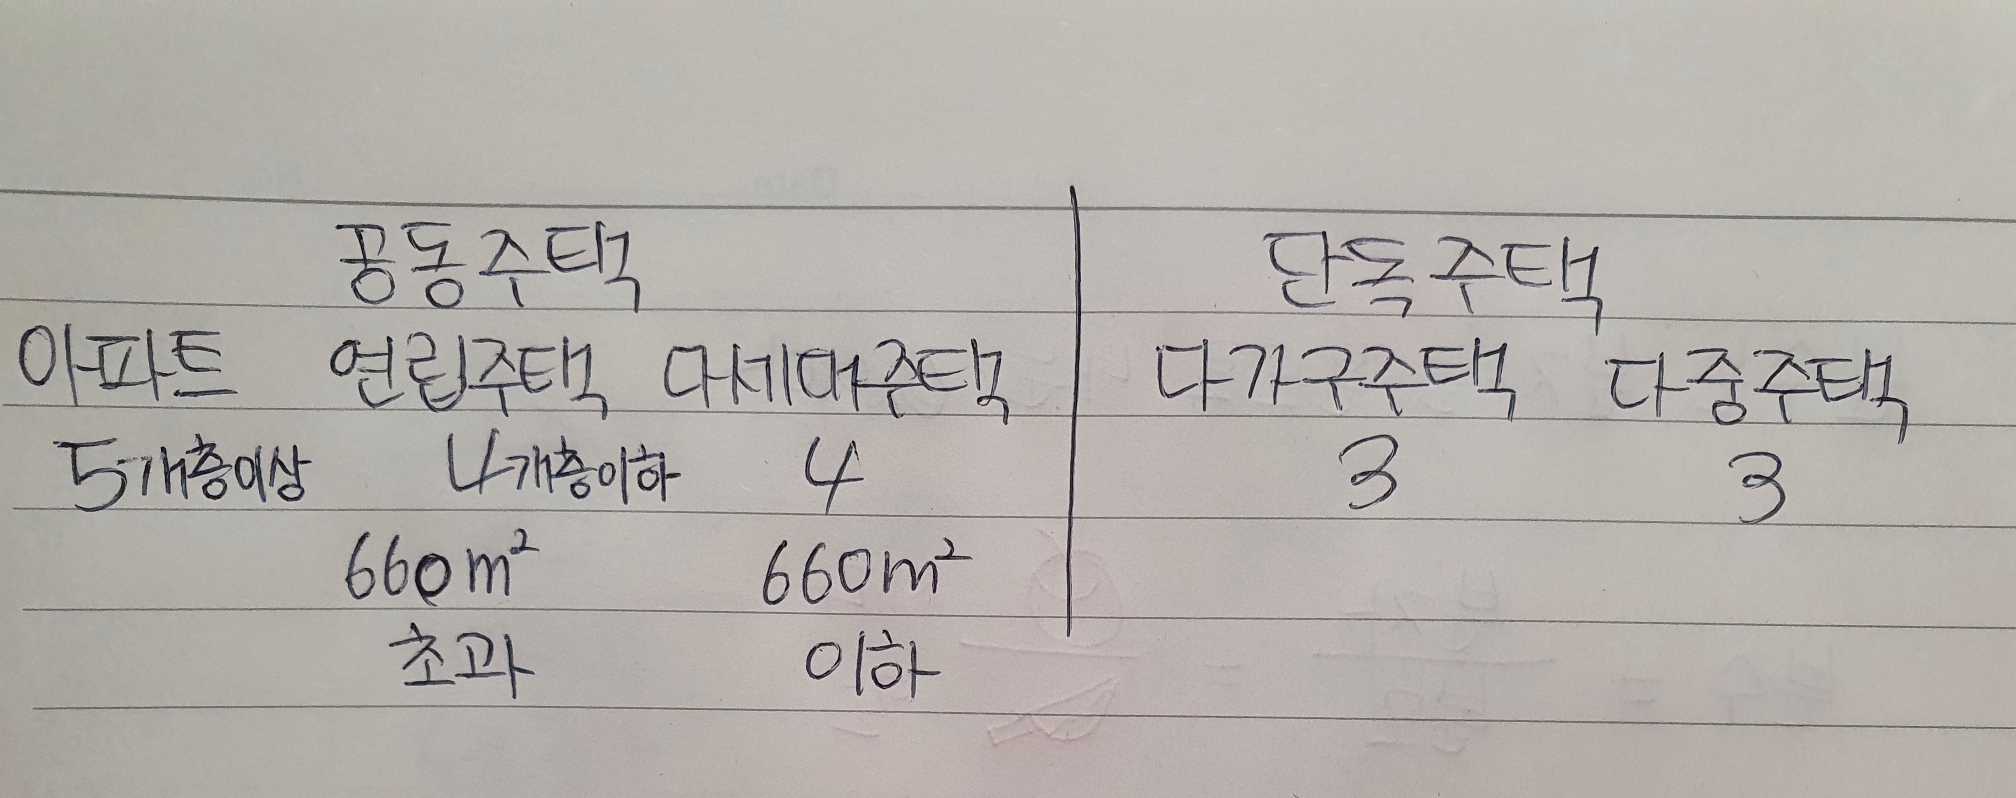 공동주택 단독주택
아파트 연립주택 다세대주택 다가구주택 다중주택
5개층이상 4개층이하 4 3 3
660m² 660m²
초과 이하